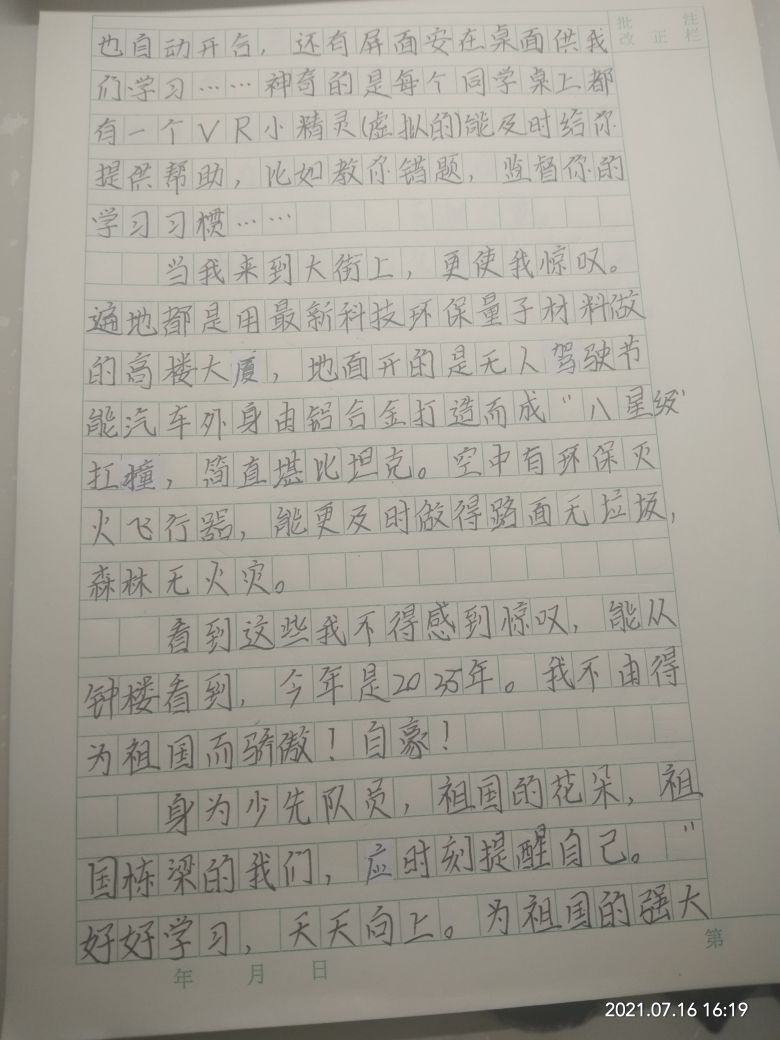 批 注
改 正 栏
也自动开合，还有屏面安在桌面供我
们学习……神奇的是每个同学桌上都
有一个VR小精灵(虚拟的)能及时给你
提供帮助，比如教你错题，监督你的
学习习惯……
当我来到大街上，更使我惊叹。
遍地都是用最新科技环保量子材料做
的高楼大厦，地面开的是无人驾驶节
能汽车外身由铝合金打造而成“八星级”
扛撞，简直堪比坦克。空中有环保灭
火飞行器，能更及时做得路面无垃圾，
森林无火灾。
看到这些我不得感到惊叹，能从
钟楼看到，今年是2035年。我不由得
为祖国而骄傲！自豪！
身为少先队员，祖国的花朵，祖
国栋梁的我们，应时刻提醒自己。“
好好学习，天天向上。为祖国的强大
年 月 日 第
2021.07.16 16:19